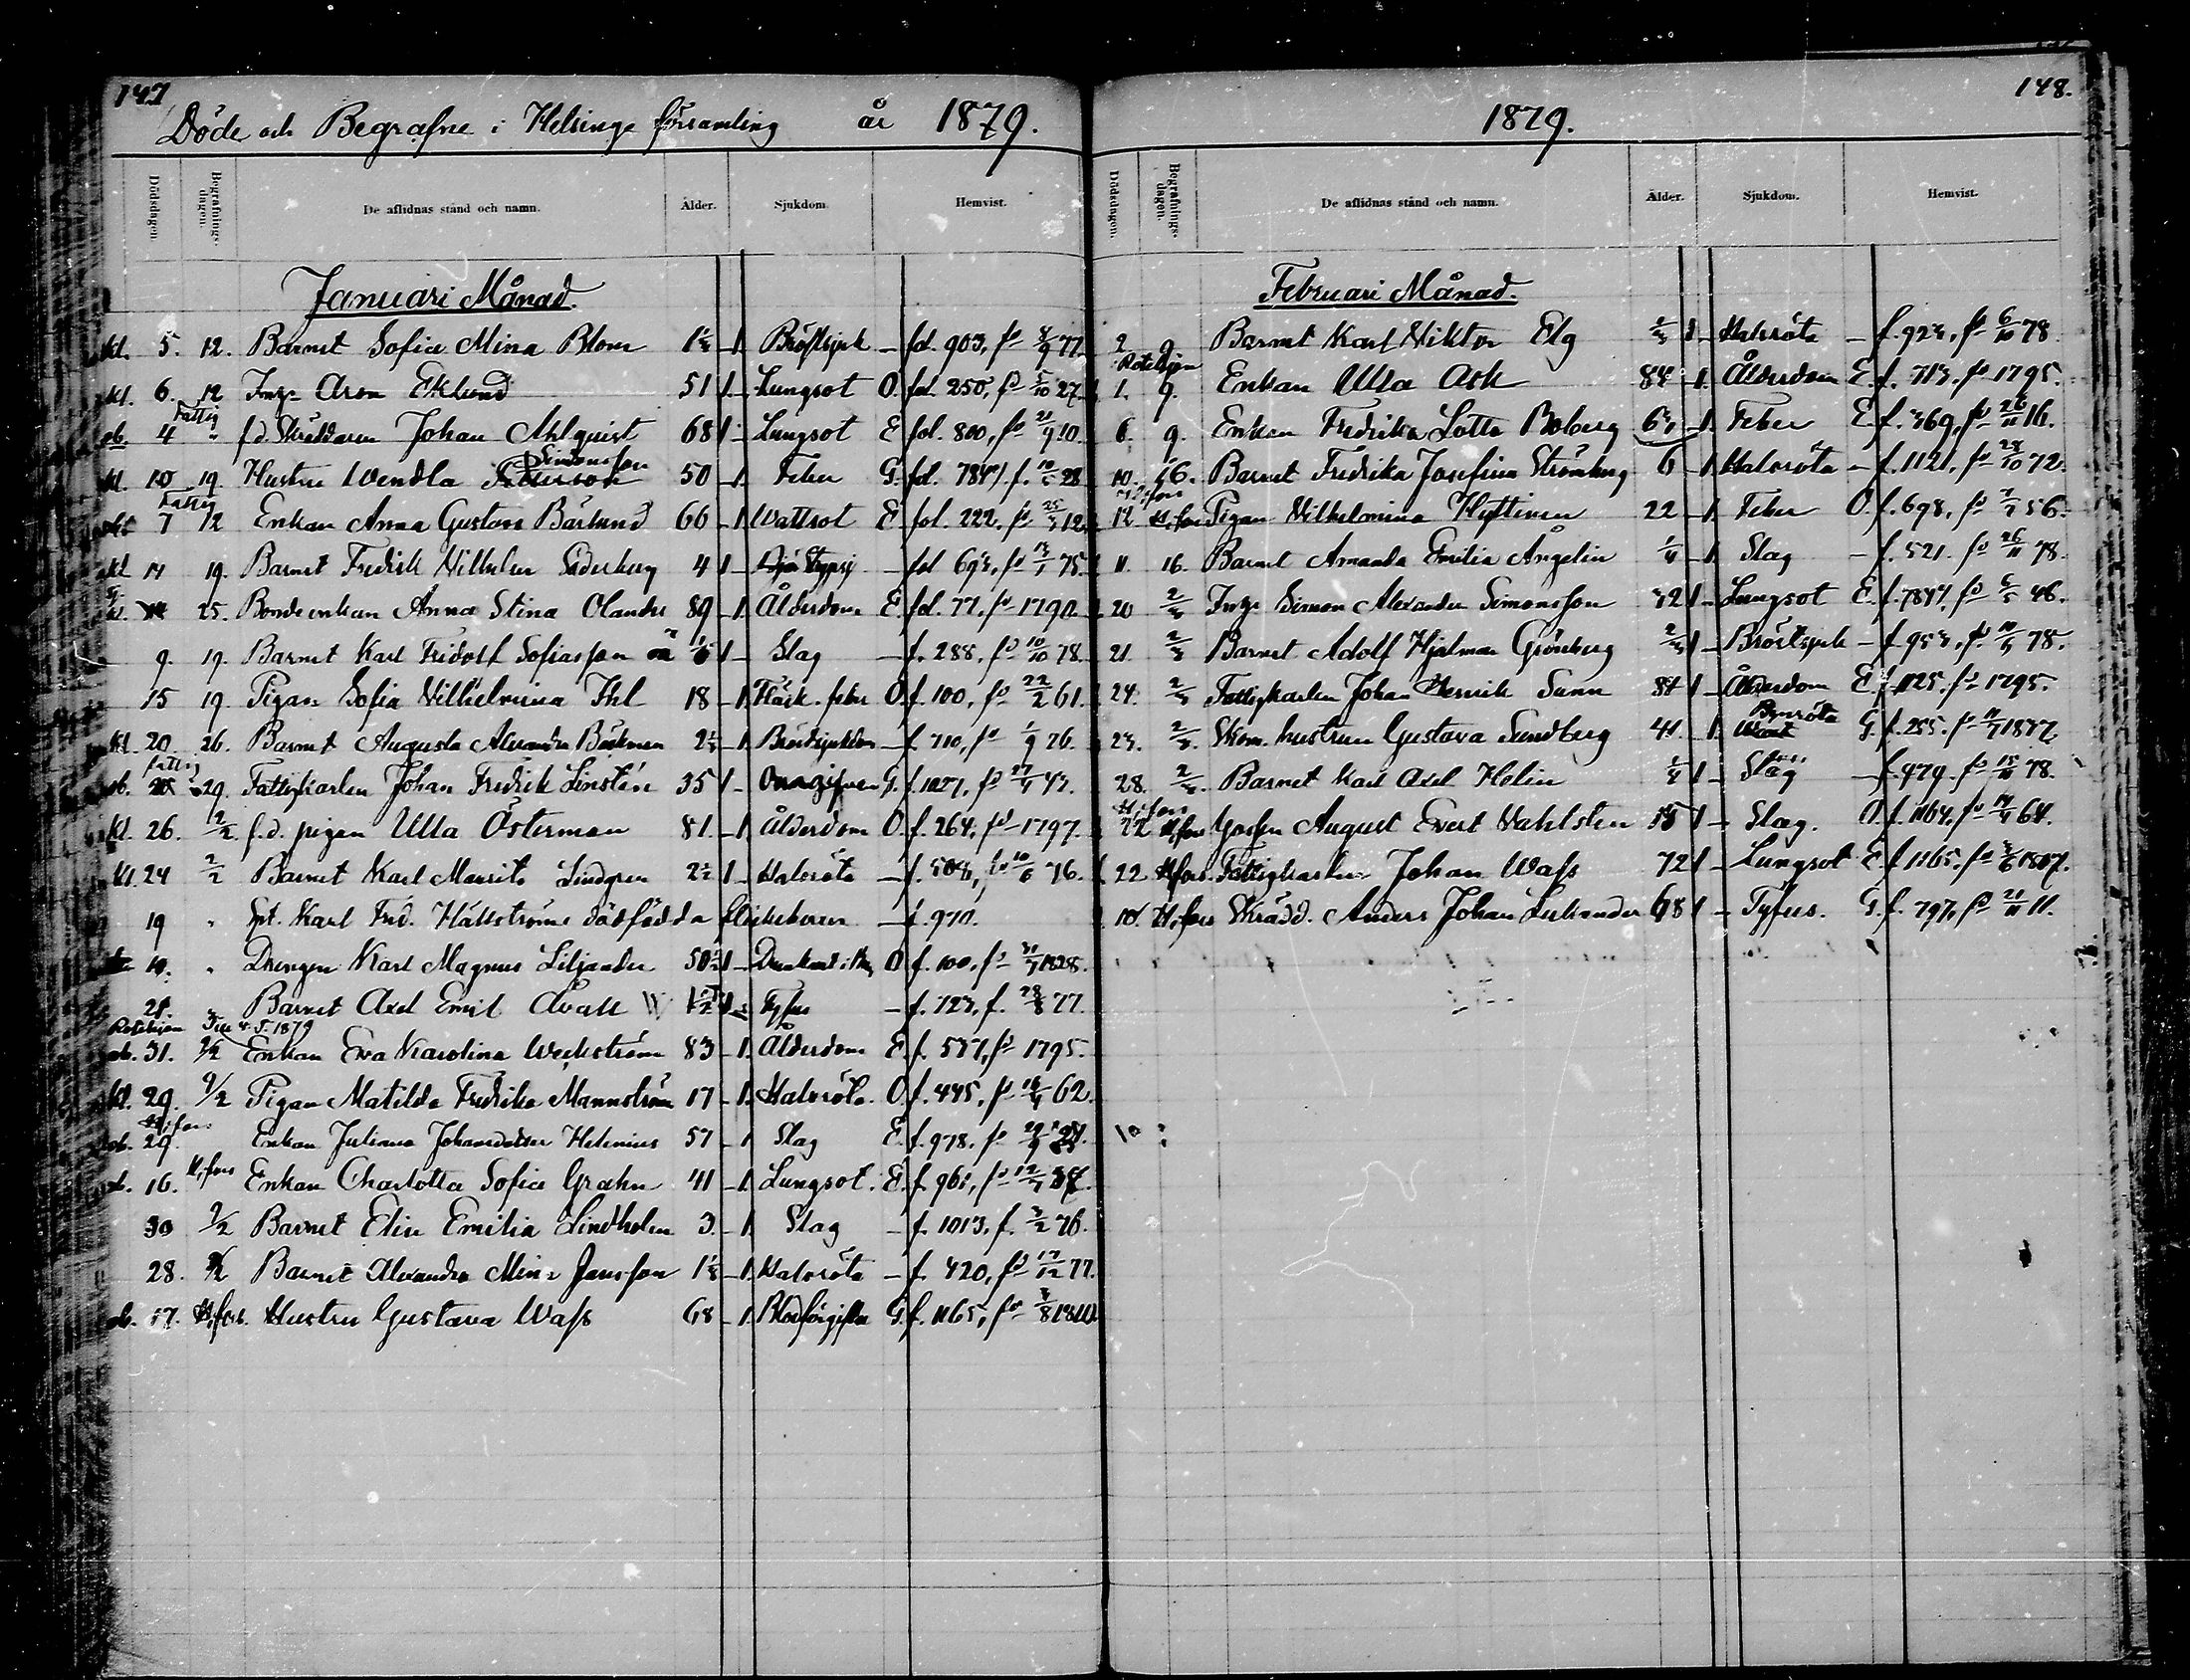 147
Döde och Begrafne i Helsinge församling år 1879.
Dödsdagen Begrafnings-dagen. De aflidnas stånd och namn. Ålder. Sjukdom. Hemvist.
Januari Månad.
kl. 5. 12. Barnet Sofia Mina Blom Bröstsjuk – fol. 903, fd 8/9 77.
kl. 6. 12 Inge Aron Eklund 51 1 – Lungsot O. fol. 250, fd 5/10 27.
Fattig
ob. 4 " f.d. Skräddaren Johan Ahlquist 68 1 – Lungsot E fol. 800, fd 21/9 10.
Simonsson
kl. 10 19. Hustru Wendla 50 – 1. Feber G. fol. 784½ f. 10/5 28
Fattig
7 12 Enkan Anna Gustava Bärlund 66 – 1 Wattsot E fol. 222, fd 25/3 12.
kl 14 19. Barnet Fredrik Wilhelm Söderberg 4 1 – – fol 693, fd 13/1 75.
kl. 25. Bondeenkan Anna Stina Olander 89 – 1. Ålderdom E fol. 77, fd 1790.
9. 19. Barnet Karl Fridolf Sofiasson 1 – Slag – f. 288, fd 10/10 78.
15 19. Pigan Sofia Vilhelmina Ihl 18 – 1. feber O. f. 100, fd 22/2 61.
kl. 20. 26. Barnet Augusta Alexandra Bäckman – 1. Bröstsjukdom – f 710, fd 1/9 76.
fattig
ob. 29. Fattigkarlen Johan Fredrik Linstén 35 1 – G. f. 1027, fd 27/4 43.
kl. 26. 2/2 f.d. pigan Ulla Österman 81. – 1. Ålderdom O. f. 264, fd 1797.
kl. 24 2/2 Barnet Karl Maurits Lindgren 2½ 1 – Halsröta – f. 508, fd 10/6 76.
19 " Karl Fred. Hällströms dödfödda flickebarn – f. 970.
19. " Drengen Karl Magnus Liljander 50½ 1 – O f. 100, fd 1828.
21. " Barnet Axel Emil Åvall Tyfus – f. 723, f. 28/8 77.
ob. 31. 9/2 Enkan Eva Karolina Weckström 83 – 1. Ålderdom E. f. 537, fd 1795.
kl. 29. 9/2 Pigan Matilda Fredrika Mannström 17 – 1. Halsröta. O. f. 445, fd 62.
H:fors
ob. 29. Enkan Juliana Johansdotter Helenius 57 – 1 Slag E. f. 978. fd
16. H:fors Enkan Charlotta Sofia Grahn 41 – 1. Lungsot. E. f. 961, fd
30 9/2 Barnet Elin Emilia Lindholm 3. – 1. Slag – f. 1013, f. 3/2 76.
28. 9/2 Barnet Alexandra Mina Jansson – 1. Halsröta – f. 420, fd 17/12 77.
ob. 17. H:fors. Hustru Gustava Wass 68 – 1. Blodförgiftn G. f. 1165, fd 3/8 1810
148.
1879.
Dödsdagen. Begrafnings-dagen. De aflidnas stånd och namn. Ålder. Sjukdom. Hemvist.
Februari Månad.
2 9 Barnet Karl Viktor Elg 1 – Halsröta – f. 923, fd 6/10 78.
1. 9. Enkan Ulla Ask – 1. Ålderdom E. f. 713. fd 1795.
6. 9. Enkan Fredrika Lotta Boberg – 1. Feber E. f. 369, fd 26/11 16.
10. 16. Barnet Fredrika Josefina Strömberg 6 – 1. Halsröta – f. 1121, fd 28/10 72.
H:fors
12 H:fors Pigan Vilhelmina Hyttinen 22 – 1. Feber O. f. 698, fd 56.
11. 16. Barnet Amanda Emilia Ångelin ¼ – 1. Slag – f. 521. fd 26/11 78.
20 2/3 Inge Simon Alexander Simonsson 32 1 – Lungsot E. f. 784½, fd 6/5 46.
21. 2/3 Barnet Adolf Hjalmar Grönberg 1 – Bröstsjuk – f. 953, fd 78.
24. 2/3 Fattigkarlen Johan Henrik Sunn 84 1 – Ålderdom E. f. 1125. fd 1795.
23. 2/3. hustrun Gustava Sundberg 41. 1. Benröta G. f. 255. fd 1837.
28. Barnet Karl Axel Holin ¼ 1 – Slag – f. 479. fd 15/11 78.
H:fors
22 H:fors Gossen August Evert Vahlsten 15 1 – Slag. O. f. 1164, fd 64.
22 H:fors. Fattigkarlen Johan Wass 72 1 – Lungsot E f. 1165. fd 3/6 1807.
10. H:fors Skrädd. Anders Johan Lukander 68 1 – Tyfus. G. f. 797, fd 21/11 11.